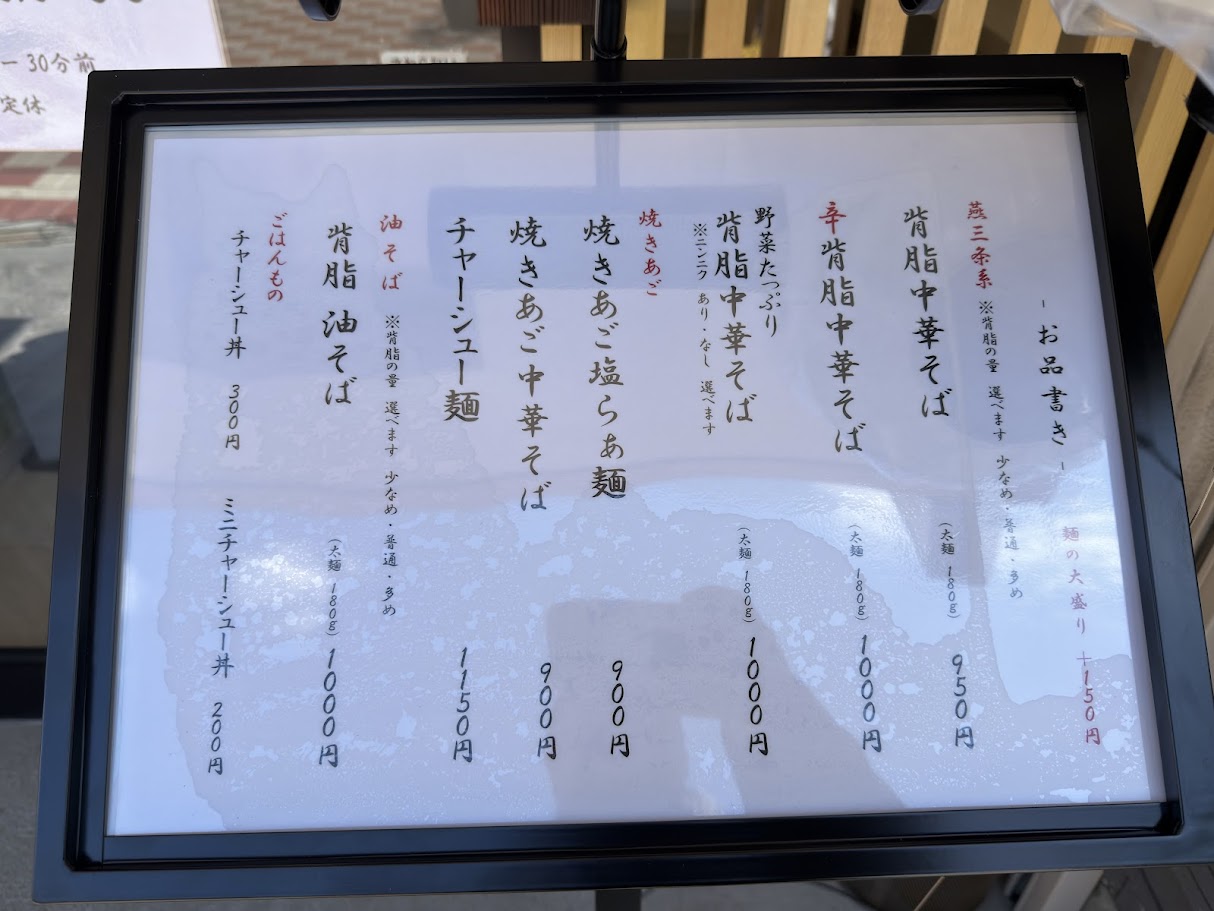 -お品書き-
麺の大盛り +150円
燕三条系 ※背脂の量 選べます 少なめ・普通・多め
背脂中華そば (太麺 180g) 950円
辛背脂中華そば (太麺 180g) 1000円
野菜たっぷり
背脂中華そば (太麺 180g) 1000円
※ニンニク あり・なし 選べます
焼きあご
焼きあご塩らぁ麺 900円
焼きあご中華そば 900円
チャーシュー麺 1150円
油そば ※背脂の量 選べます 少なめ・普通・多め
背脂 油そば (太麺 180g) 1000円
ごはんもの
チャーシュー丼 300円 ミニチャーシュー丼 200円
30分前
定休